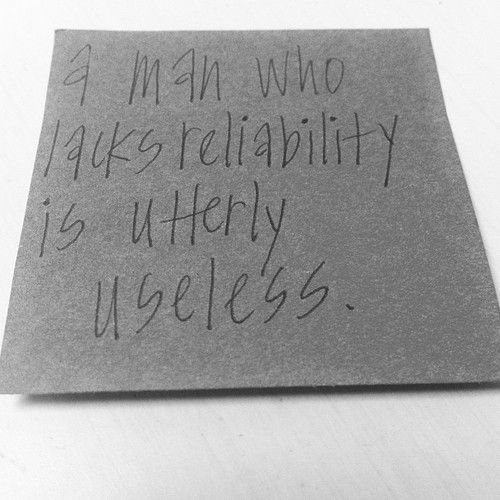 a man who
lacks reliability
is utterly
useless.